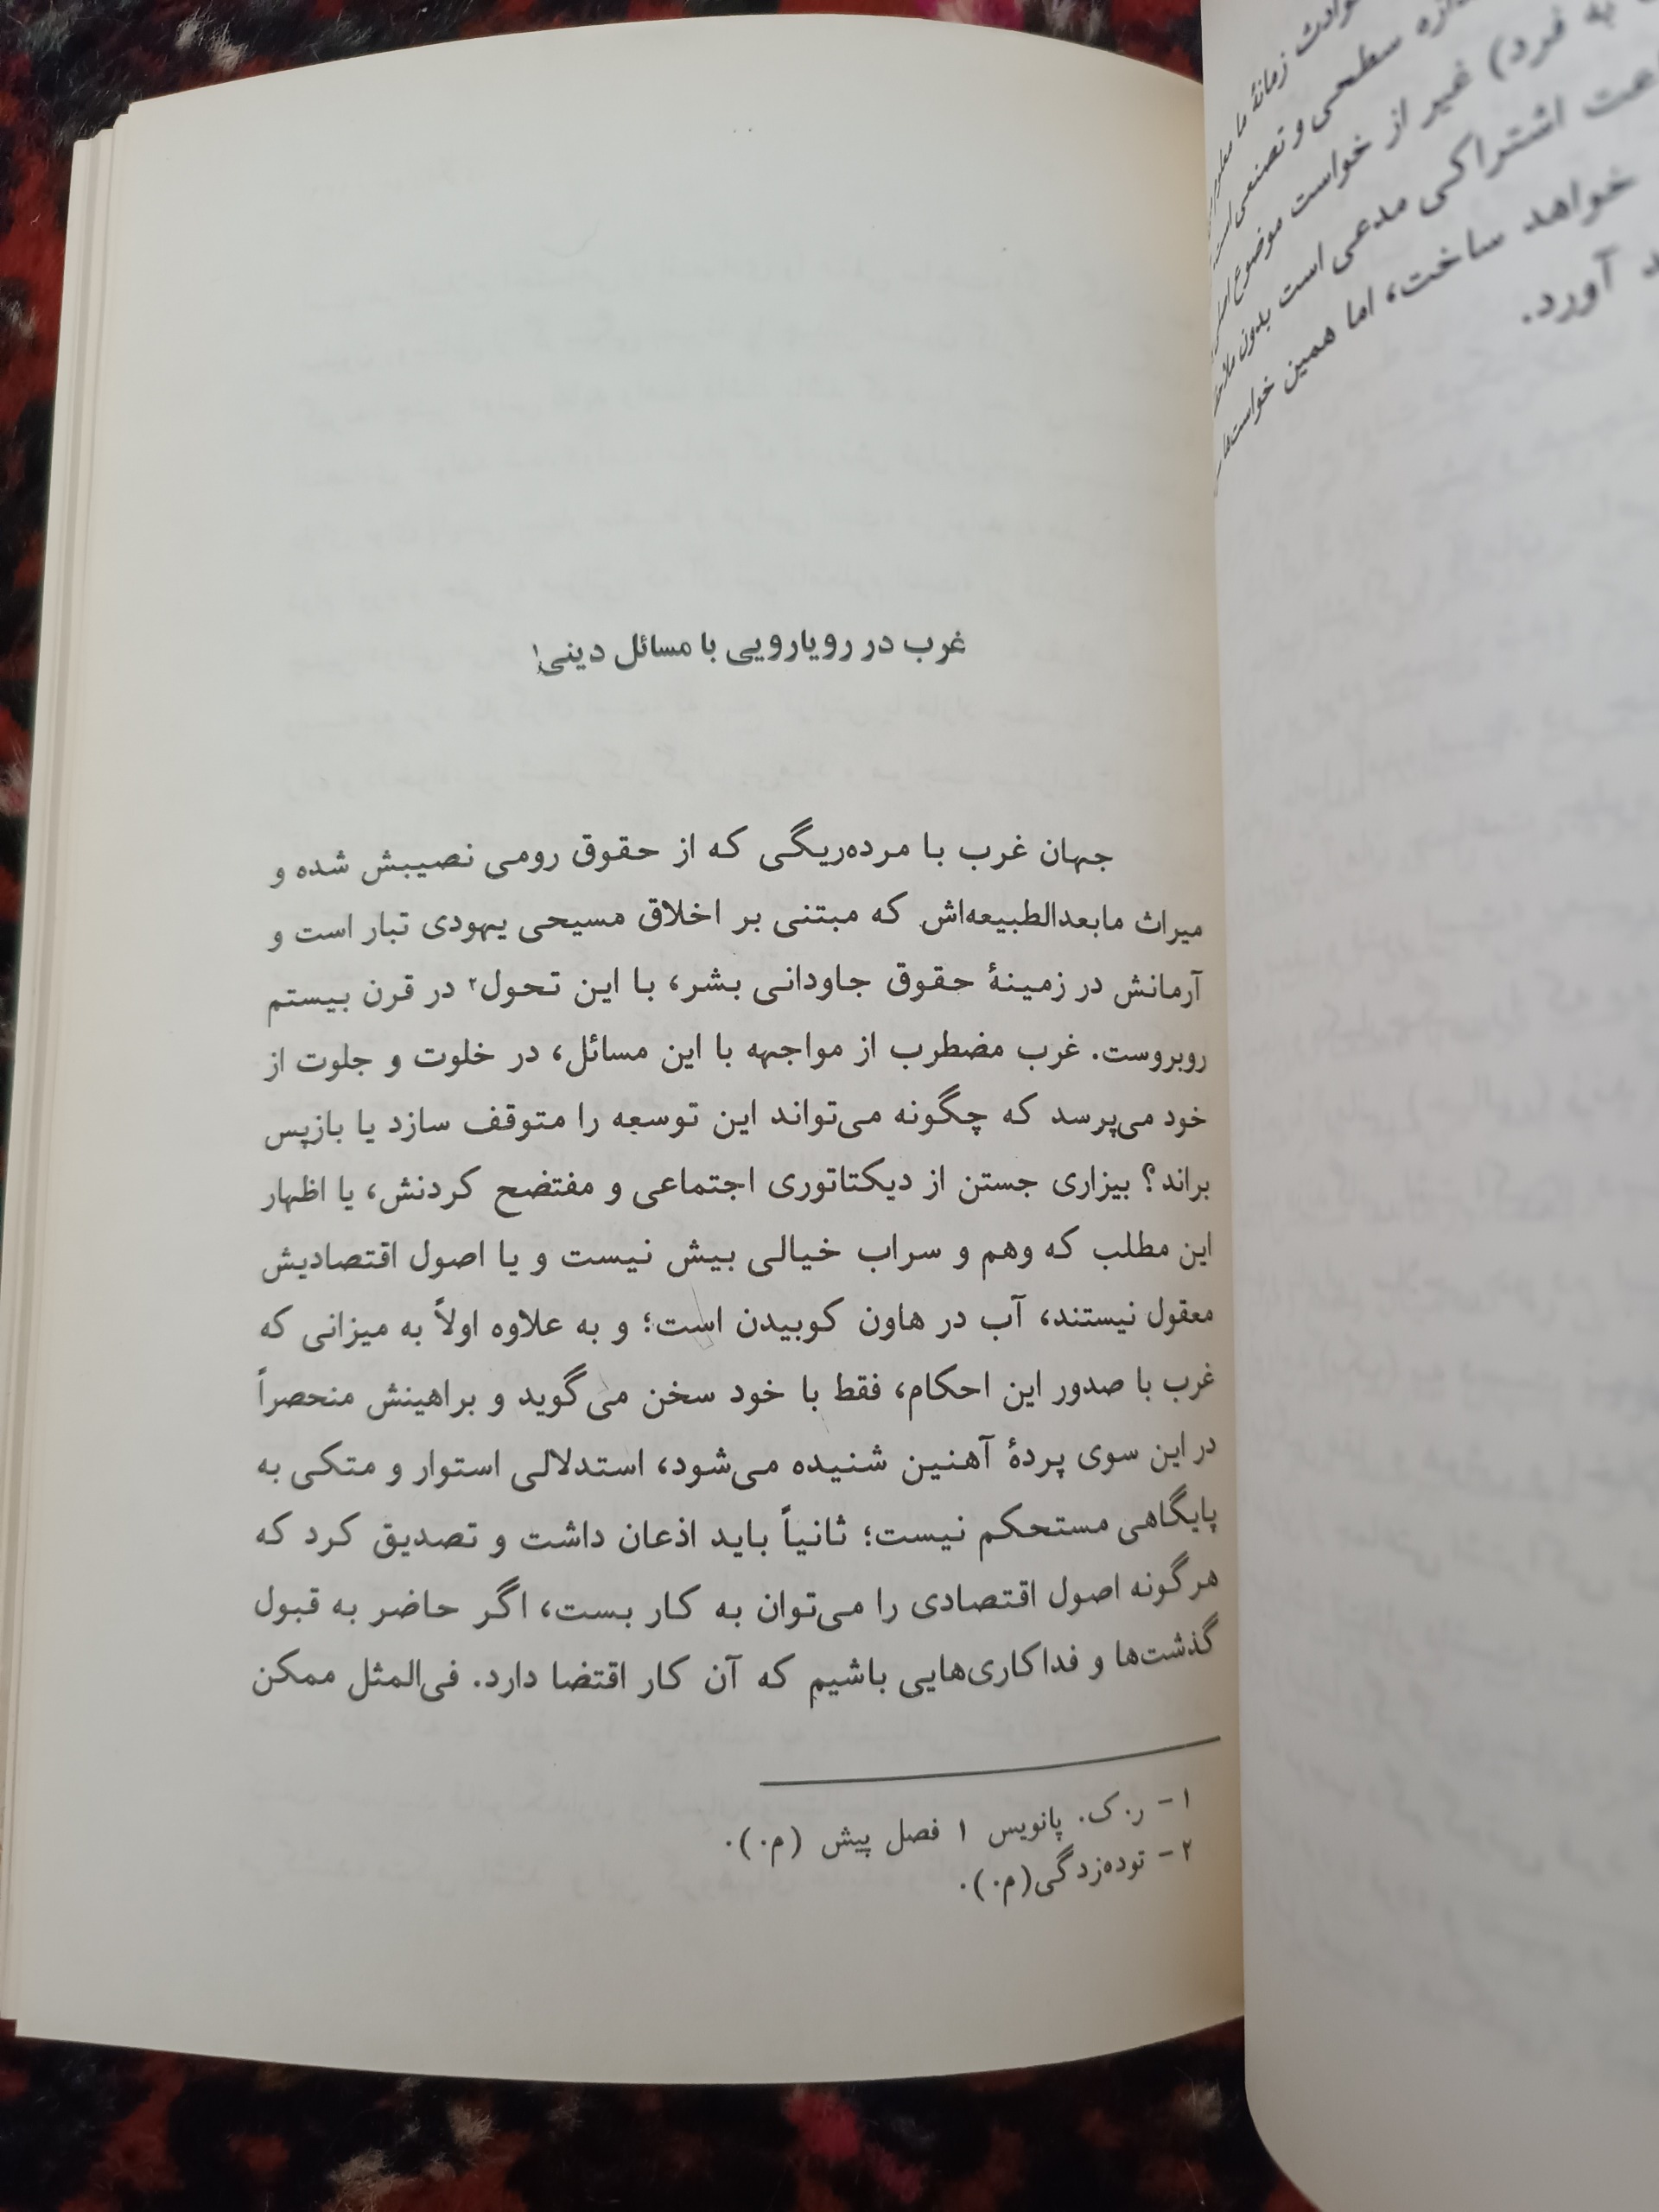 زمانهٔ ما
سطحی و تصنعی است
به فرد) غیر از خواست موضوع
اشتراکی مدعی است بدون
خواهد ساخت، اما همین خواست‌ها
آورد.
غرب در رویارویی با مسائل دینی۱
جهان غرب با مرده‌ریگی که از حقوق رومی نصیبش شده و
میراث مابعدالطبیعه‌اش که مبتنی بر اخلاق مسیحی یهودی تبار است و
آرمانش در زمینهٔ حقوق جاودانی بشر، با این تحول۲ در قرن بیستم
روبروست. غرب مضطرب از مواجهه با این مسائل، در خلوت و جلوت از
خود می‌پرسد که چگونه می‌تواند این توسعه را متوقف سازد یا بازپس
براند؟ بیزاری جستن از دیکتاتوری اجتماعی و مفتضح کردنش، یا اظهار
این مطلب که وهم و سراب خیالی بیش نیست و یا اصول اقتصادیش
معقول نیستند، آب در هاون کوبیدن است؛ و به علاوه اولاً به میزانی که
غرب با صدور این احکام، فقط با خود سخن می‌گوید و براهینش منحصراً
در این سوی پردهٔ آهنین شنیده می‌شود، استدلالی استوار و متکی به
پایگاهی مستحکم نیست؛ ثانیاً باید اذعان داشت و تصدیق کرد که
هرگونه اصول اقتصادی را می‌توان به کار بست، اگر حاضر به قبول
گذشت‌ها و فداکاری‌هایی باشیم که آن کار اقتضا دارد. فی‌المثل ممکن
۱- ر.ک. پانویس ۱ فصل پیش (م.).
۲- توده‌زدگی(م.).